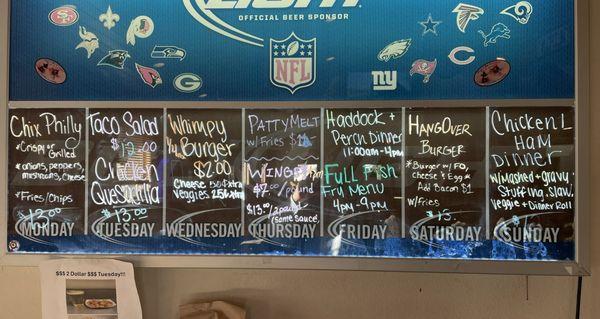 LIGHT
OFFICIAL BEER SPONSOR
NFL
SF
G
NY
C
Chix Philly
*Crispy or
Grilled
*onions, peppers
mushrooms, Cheese
*Fries/Chips
$12.00
MONDAY
Taco Salad
$12.00
Chicken
Quesadilla
$13.00
TUESDAY
Whimpy
Burger
$2.00
Cheese 50¢ xtra
Veggies 25¢ xtra
WEDNESDAY
PATTYMELT
w/ Fries
WINGS
/pound
$13.00 2 pound
/some sauce
THURSDAY
Haddock +
Perch Dinner
11:00am-4pm
Full Fish
Fry Menu
4pm-9pm
FRIDAY
HANGOVER
BURGER
*Burger w/ FO,
Cheese & Egg*
Add Bacon $1
w/Fries
SATURDAY
Chicken
Ham
Dinner
w/mashed + gravy
Stuffing, Slaw,
veggie + Dinner Roll
SUNDAY
$$$ 2 Dollar $$$ Tuesday!!!